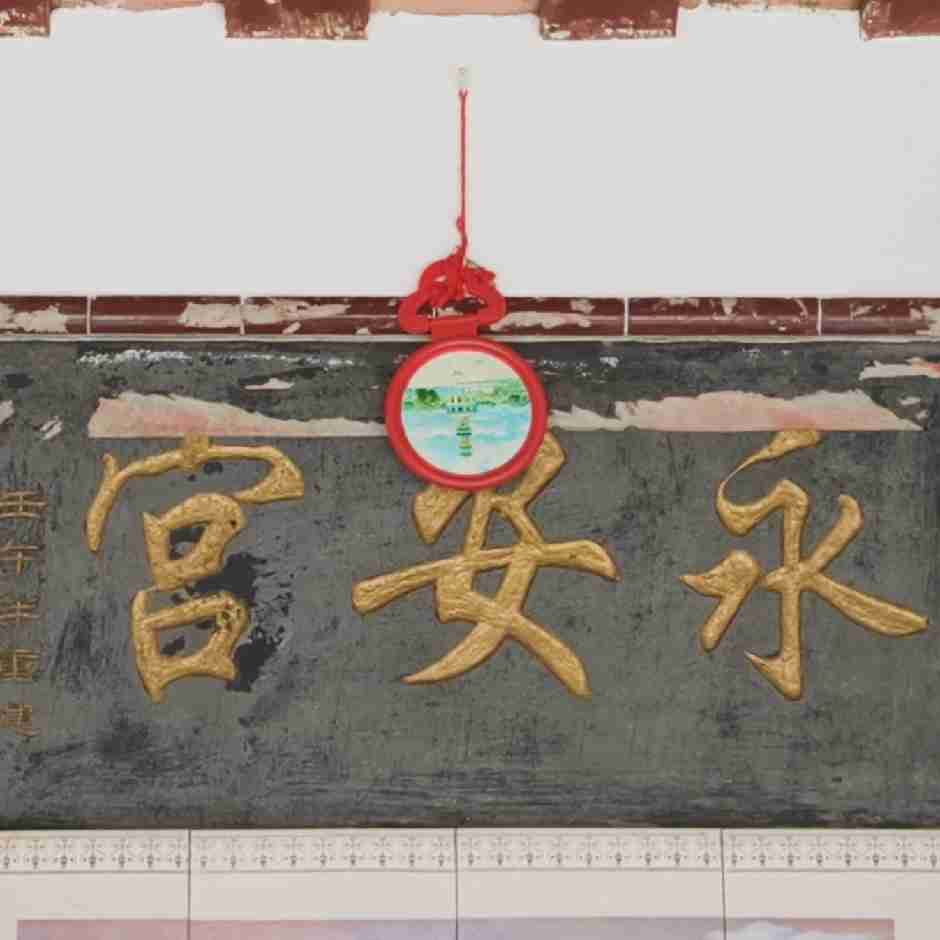 永安宮
午年重建